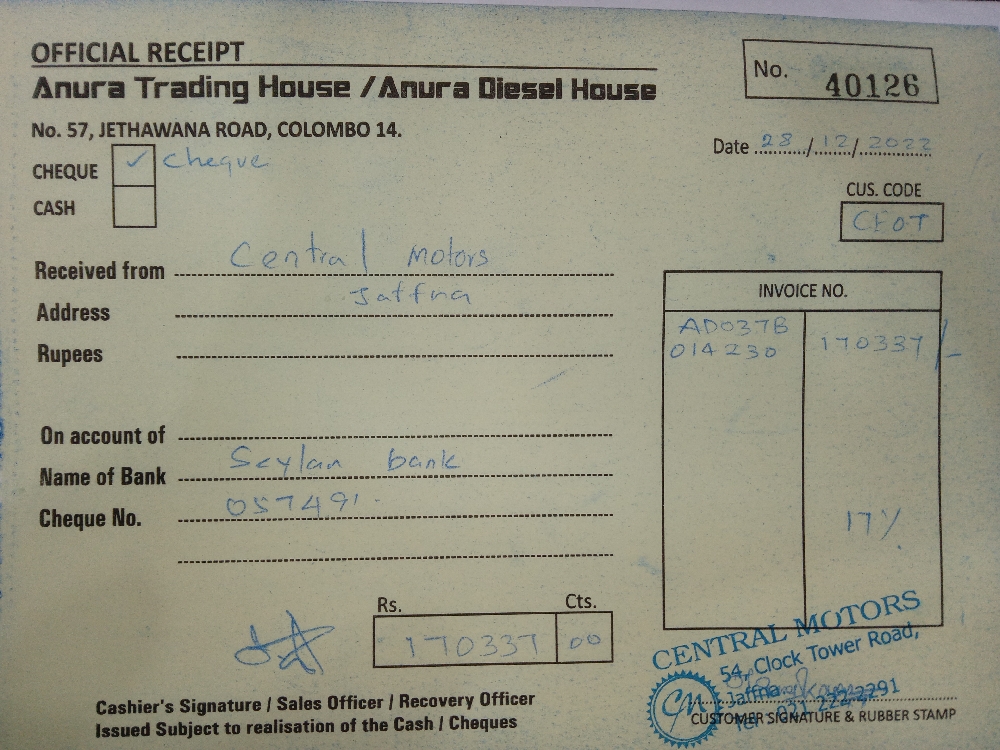 OFFICIAL RECEIPT
Anura Trading House / Anura Diesel House
No. 40126
No. 57, JETHAWANA ROAD, COLOMBO 14.
Date 28/12/2022
CHEQUE ✓ cheque
CASH
CUS. CODE
Received from Central Motors
Address Jaffna
Rupees
INVOICE NO.
AD037B
014230 170337/-
On account of
Name of Bank Seylan bank
Cheque No. 057491
17%
Rs. Cts.
170337 00
CENTRAL MOTORS
54, Clock Tower Road,
Jaffna
Tel: 021 222 2291
Cashier's Signature / Sales Officer / Recovery Officer
Issued Subject to realisation of the Cash / Cheques
CM
CUSTOMER SIGNATURE & RUBBER STAMP